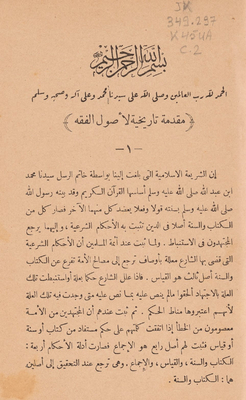 JK
349.297
K45UA
C.2
بسم الله الرحمن الرحيم
الحمد لله رب العالمين وصلى الله على سيدنا محمد وعلى آله وصحبه وسلم
﴿ مقدمة تاريخية لأصول الفقه ﴾
— ١ —
إن الشريعة الاسلامية التى بلغت إلينا بواسطة خاتم الرسل سيدنا محمد
ابن عبد الله صلى الله عليه وسلم أساسها القرآن الكريم وقد بينه رسول الله
صلى الله عليه وسلم بسنته قولا وفعلا بعضد كل منهما الآخر فصار كل من
الكتاب والسنة أصلا فى الدين تثبت به الأحكام الشرعية ، واليهما يرجع
المجتهدون فى الاستنباط . ولما ثبت عند أئمة السلمين أن الأحكام الشرعية
التى قضى بها الشارع معللة بأوصاف ترجع إلى مصالح الأمة تفرع عن الكتاب
والسنة أصل ثالث هو القياس . فاذا علل الشارع حكما بعلة أواستنبطت تلك
العلة بالاجتهاد ألحقوا مالم ينص عليه بما نص عليه متى وجدت فيه تلك العلة
لأنهم اعتبروها مناط الحكم . ثم ثبت عندهم أن المجتهدين من الأمة
معصومون من الخطأ إذا اتفقت كلمتهم على حكم مستفاد من كتاب أوسنة
أو قياس فثبت لهم أصل رابع هو الإجماع فصارت أدلة الأحكام أربعة :
الكتاب والسنة ، والقياس ، والاجماع . وهى ترجع عند التحقيق إلى أصلين
هما : الكتاب والسنة .